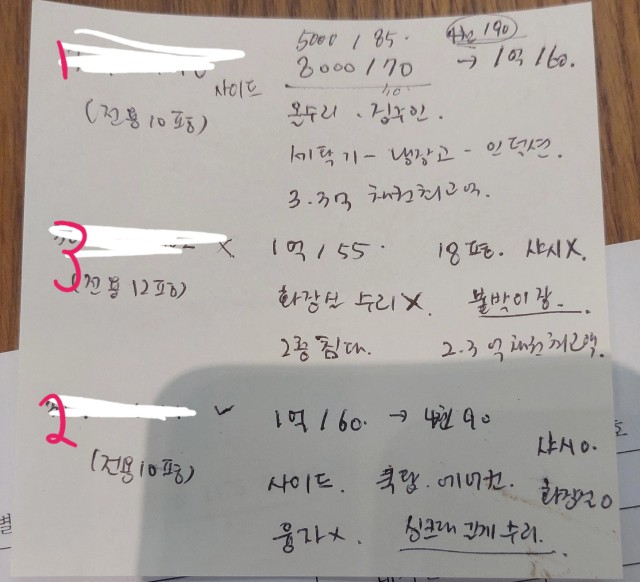 1
5000 / 85. 4천 / 90
3000 / 70 → 1억 / 60.
사이드
(전용 10평)
올수리. 집주인.
세탁기 - 냉장고 - 인덕션.
3.3억 채권최고액.
3 X 1억 / 55. 18평. 샤시X.
(전용 12평) 화장실 수리X. 붙박이장.
2층 침대. 2.3억 채권최고액.
2 ✓ 1억 / 60. → 4천 90
샤시O.
(전용 10평) 사이드. 옥탑. 에어컨. 화장실O
융자X. 싱크대 교체 수리.